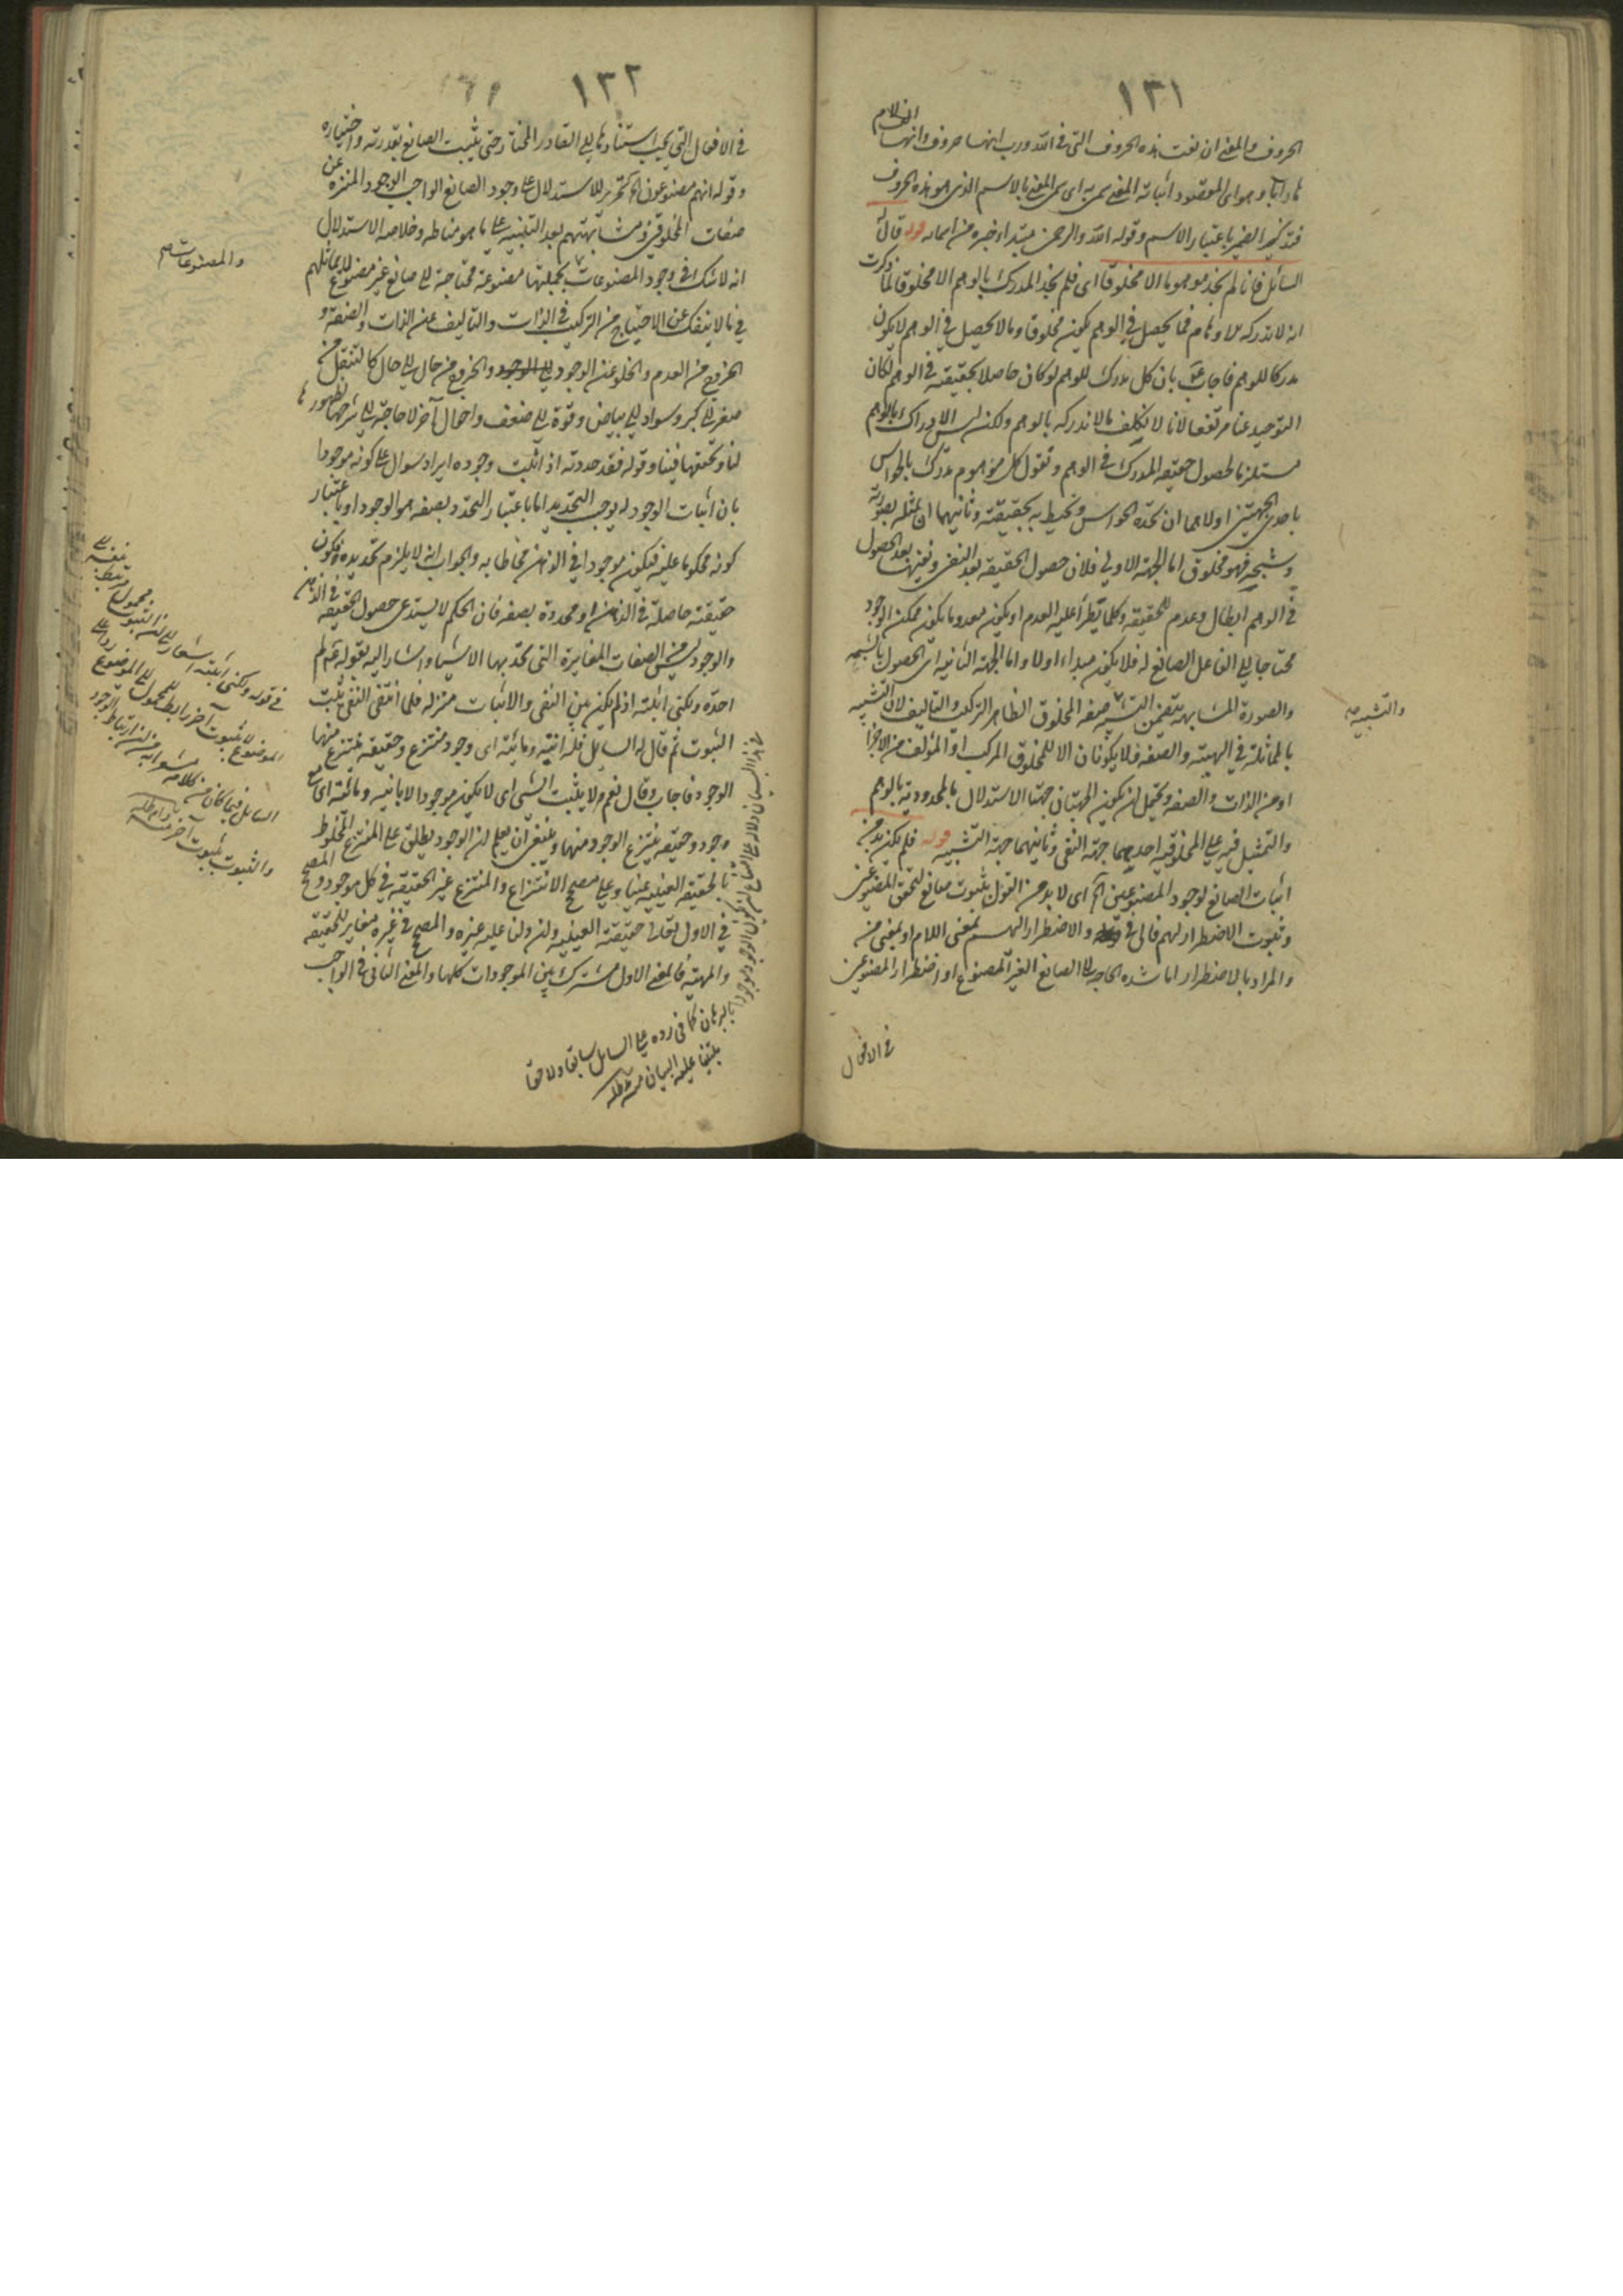 ١٣١
الحروف والمعنى ان نعت هذه الحروف التى فى الله ورب انها حروف وانها الف لام
هاء راء باء وهو اى المقصود اثباته المعنى سمى به اى سمى المعنى بالاسم الذى هو هذه الحروف
فتذكير الضمير باعتبار الاسم وقوله الله والرحمن مبتداء خبره من اسمائه قوله قال
السائل فانا لم نجد موهوما الا مخلوقا اى فلم نجد المدرك بالوهم الا مخلوقا لما ذكرت
انه لا تدركه الاوهام فما يحصل فى الوهم يكون مخلوقا وما لا يحصل فى الوهم لا يكون
مدركا للوهم فاجاب بان كل مدرك للوهم لو كان حاصلا بحقيقته فى الوهم لكان
التوحيد عنا مرتفعا لانا لا نكلف ما لا ندركه بالوهم ولكن ليس الادراك بالوهم
مستلزما لحصول حقيقة المدرك فى الوهم ونقول كل موهوم مدرك بالحواس
باحدى الجهتين اولاهما ان تحده الحواس وتحيط به بحقيقته وثانيهما ان تمثله بصورته
وشبحه فهو مخلوق اما الجهة الاولى فلان حصول الحقيقة بعد النفى ونفيها بعد الحصول
فى الوهم ابطال وعدم للحقيقة وكلما يطرأ عليه العدم او يكون معدوما يكون ممكن الوجود
محتاجا الى الفاعل الصانع له فلا يكون مبداء اولا واما الجهة الثانية اى الحصول بالشبه
والصورة المشابهة يتضمن التشبيه صفة المخلوق الظاهر التركيب والتاليف لان التشبيه
بالمماثلة فى الهيئة والصفة ولا يكونان الا للمخلوق المركب او المؤلف من الاجزاء
او من الذات والصفة ويحتمل ان يكون الجهتان جهتا الاستدلال بالمحدودية بالوهم
والتمثيل فيه على المخلوقية احديهما جهة النفى وثانيهما جهة التشبيه قوله فلم يكن بد من
اثبات الصانع لوجود المصنوعين الخ اى لا بد من القول بثبوت صانع لتحقق المصنوعين
وثبوت الاضطرار لهم فالى فى والاضطرار اليهم بمعنى اللام او بمعنى من
والمراد بالاضطرار اما شدة الحاجة الى الصانع الغير المصنوع او اضطرار المصنوعين
فى الافعال
والتشبيه صح
١٣٢
فى الافعال التى يجب استنادها الى القادر المختار حتى يثبت الصانع بقدرته واختياره
وقوله انهم مصنوعون الخ تحرير للاستدلال على وجود الصانع الواجب الوجود المنزه عن
صفات المخلوقين ومشابهتهم بعد التنبيه على ما هو مناطه وخلاصة الاستدلال
انه لا شك فى وجود المصنوعات بجملتها مصنوعة محتاجة الى صانع غير مصنوع لا يماثلهم
فى ما لا ينفك عن الاحتياج من التركيب فى الذات والتاليف عن الذات والصفة و
الخروج من العدم والخلو عن الوجود الى الوجود والخروج من حال الى حال كالتنقل من
صغر الى كبر وسواد الى بياض وقوة الى ضعف واحوال آخر لا حاجة الى شرحها لظهورها
لنا وتحققها فينا وقوله فقد حددته اذ اثبت وجوده ايراد سوال على كونه موجودا
بان اثبات الوجود له يوجب التحديد اما باعتبار التحدد بصفة هو الوجود او باعتبار
كونه محكوما عليه فيكون موجودا فى الذهن محاطا به والجواب انه لا يلزم تحديده وكون
حقيقته حاصلة فى الذهن او محدودة بصفة فان الحكم لا يستدعى حصول الحقيقة فى الذهن
والوجود ليس من الصفات المغايرة التى تحد بها الاشياء واشار اليه بقوله لم
احده ولكنى اثبته اذ لم يكن بين النفى والاثبات منزلة فلما انتفى النفى ثبت
الثبوت ثم قال له السائل فله انية ومائية اى وجود منتزع وحقيقة ينتزع منها
الوجود فاجاب وقال نعم لا يثبت الشىء اى لا يكون موجودا الا بانية ومائية اى مع
وجود وحقيقة ينتزع الوجود منها وينبغى ان يعلم ان الوجود يطلق على المنتزع المخلوط
بالحقيقة العينية عينا وعلى مصحح الانتزاع والمنتزع غير الحقيقة فى كل موجود والمصحح
فى الاول تعالى حقيقته العينية وان دلنا عليه غيره والمصحح فى غيره مغاير للحقيقة
والمهية فالمعنى الاول مشترك بين الموجودات كلها والمعنى الثانى فى الواجب
والمصنوعات صح
فى قوله ولكنى اثبته اشعار
لا ثبوت آخر رابط للمحمول الى الموضوع
السائل فيما كان من كلامه
والثبوت ثبوت آخر منه دام ظله
بالبرهان كما فى رده على السائل سابقا ولاحقا